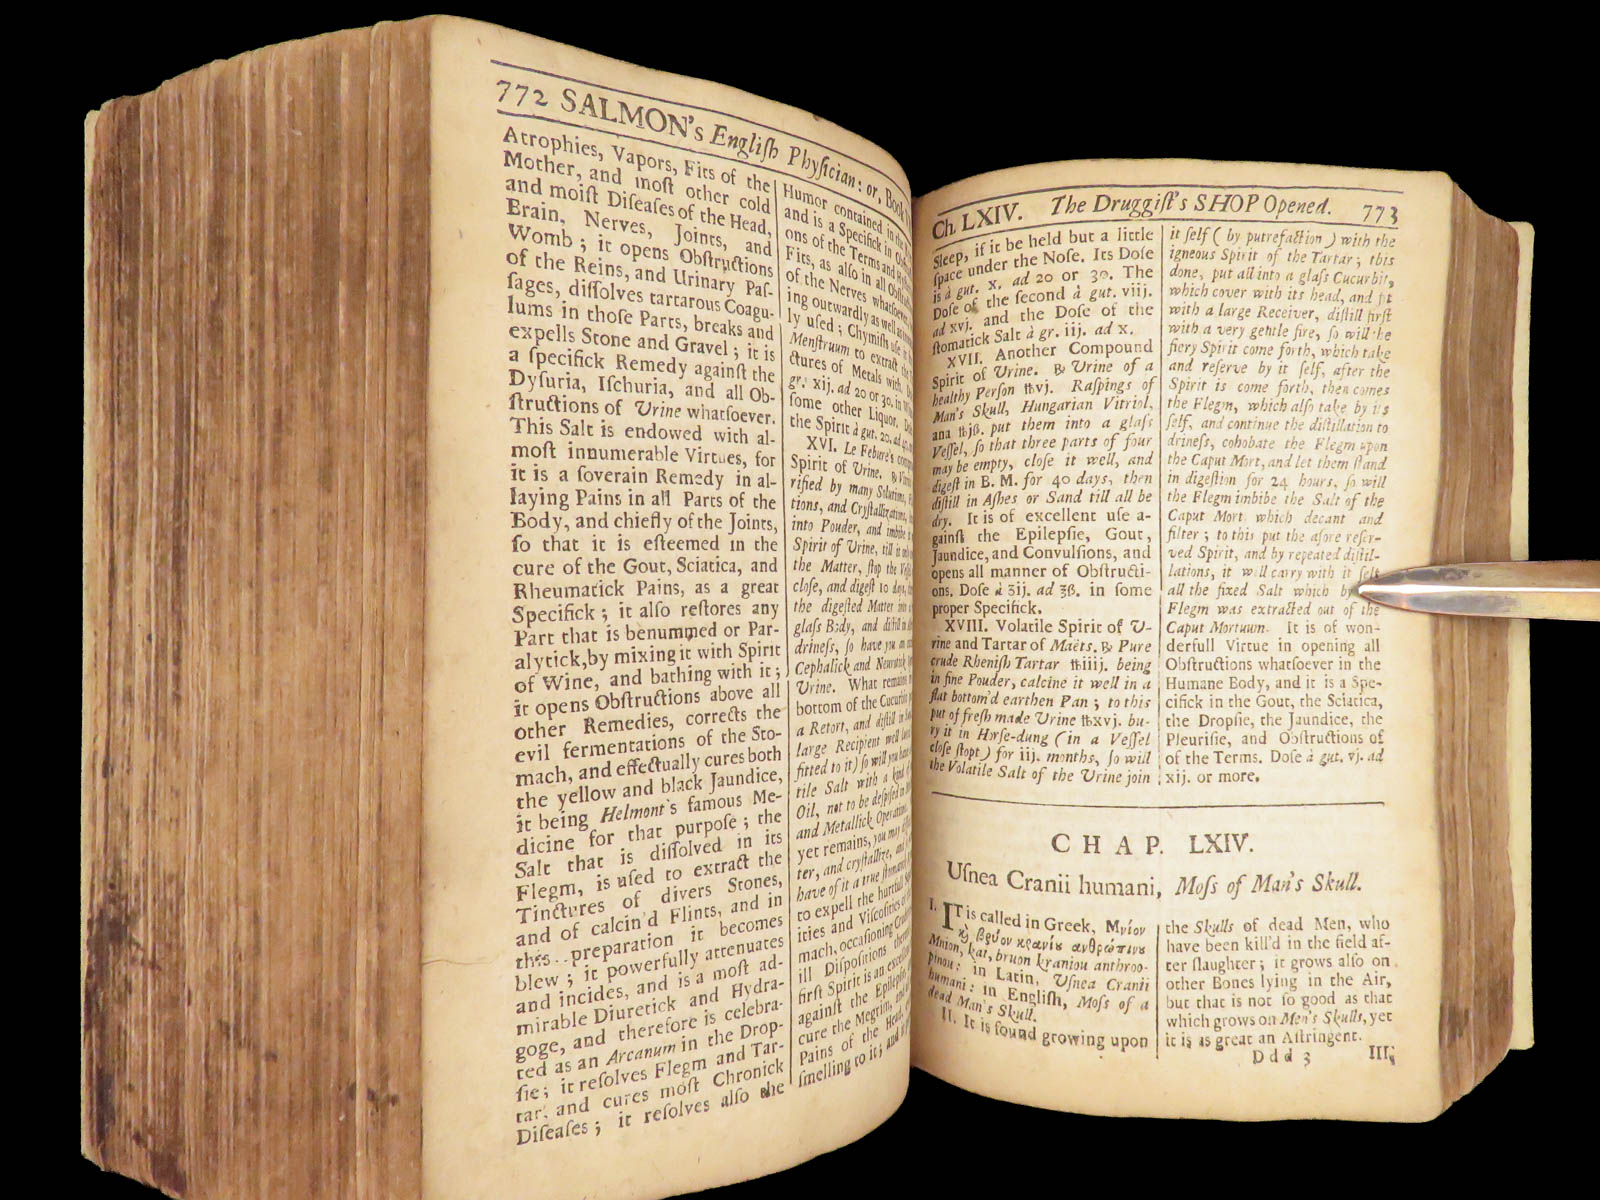 772 SALMON's Engliſh Phyſician: or, Book
Atrophies, Vapors, Fits of the
Mother, and moſt other cold
and moiſt Diſeaſes of the Head,
Brain, Nerves, Joints, and
Womb; it opens Obſtructions
of the Reins, and Urinary Paſ-
ſages, diſſolves tartarous Coagu-
lums in thoſe Parts, breaks and
expells Stone and Gravel; it is
a ſpecifick Remedy againſt the
Dyſuria, Iſchuria, and all Ob-
ſtructions of Urine whatſoever.
This Salt is endowed with al-
moſt innumerable Virtues, for
it is a ſoverain Remedy in al-
laying Pains in all Parts of the
Body, and chiefly of the Joints,
ſo that it is eſteemed in the
cure of the Gout, Sciatica, and
Rheumatick Pains, as a great
Specifick; it alſo reſtores any
Part that is benummed or Par-
alytick, by mixing it with Spirit
of Wine, and bathing with it;
it opens Obſtructions above all
other Remedies, corrects the
evil fermentations of the Sto-
mach, and effectually cures both
the yellow and black Jaundice,
it being Helmont's famous Me-
dicine for that purpoſe; the
Salt that is diſſolved in its
Flegm, is uſed to extract the
Tinctures of divers Stones,
and of calcin'd Flints, and in
this preparation it becomes
blew; it powerfully attenuates
and incides, and is a moſt ad-
mirable Diuretick and Hydra-
goge, and therefore is celebra-
ted as an Arcanum in the Drop-
ſie; it reſolves Flegm and Tar-
tar, and cures moſt Chronick
Diſeaſes; it reſolves alſo the
Humor contained in the
and is a Specifick in
ons of the Terms and
Fits, as alſo in all
of the Nerves whatſoever,
ing outwardly as well as
ly uſed; Chymiſts uſe it
Menſtruum to extract the
ctures of Metals with.
gr. xij. ad 20 or 30. in
ſome other Liquor.
the Spirit à gut. 20. ad
XVI. Le Febure's
Spirit of Urine. ℞
rified by many
tions, and Cryſtallizations,
into Pouder, and imbibe
Spirit of Urine, till it
the Matter, ſtop the
cloſe, and digeſt 10 days,
the digeſted Matter into
glaſs Body, and diſtill
drineſs, ſo have you an
Cephalick and
Urine. What remains
bottom of the Cucurbit
a Retort, and diſtill
large Recipient well
fitted to it) ſo will you have
tile Salt with a kind of
Oil, not to be deſpiſed in
and Metallick Operations.
yet remains, you may
ter, and cryſtallize, and
have of it a true
to expell the hurtfull
ities and Viſcoſities of
mach, occaſioning
ill Diſpoſitions
firſt Spirit is an excellent
againſt the Epilepſie,
cure the Megrim, and
Pains of the Head,
ſmelling to it; and
Ch. LXIV. The Druggiſt's SHOP Opened. 773
Sleep, if it be held but a little
ſpace under the Noſe. Its Doſe
is à gut. x. ad 20 or 30. The
Doſe of the ſecond à gut. viij.
ad xvj. and the Doſe of the
ſtomatick Salt à gr. iij. ad x.
XVII. Another Compound
Spirit of Urine. ℞ Urine of a
healthy Perſon ℔vj. Raſpings of
Man's Skull, Hungarian Vitriol,
ana ℔jß. put them into a glaſs
Veſſel, ſo that three parts of four
may be empty, cloſe it well, and
digeſt in B. M. for 40 days, then
diſtill in Aſhes or Sand till all be
dry. It is of excellent uſe a-
gainſt the Epilepſie, Gout,
Jaundice, and Convulſions, and
opens all manner of Obſtructi-
ons. Doſe à ʒij. ad ℥ß. in ſome
proper Specifick.
XVIII. Volatile Spirit of U-
rine and Tartar of Maëts. ℞ Pure
crude Rheniſh Tartar ℔iiij. being
in fine Pouder, calcine it well in a
flat bottom'd earthen Pan; to this
put of freſh made Urine ℔xvj. bu-
ry it in Horſe-dung (in a Veſſel
cloſe ſtopt) for iij. months, ſo will
the Volatile Salt of the Urine join
it ſelf (by putrefaction) with the
igneous Spirit of the Tartar; this
done, put all into a glaſs Cucurbit,
which cover with its head, and fit
with a large Receiver, diſtill firſt
with a very gentle fire, ſo will the
fiery Spirit come forth, which take
and reſerve by it ſelf, after the
Spirit is come forth, then comes
the Flegm, which alſo take by its
ſelf, and continue the diſtillation to
drineſs, cohobate the Flegm upon
the Caput Mort, and let them ſtand
in digeſtion for 24 hours, ſo will
the Flegm imbibe the Salt of the
Caput Mort which decant and
filter; to this put the afore reſer-
ved Spirit, and by repeated diſtil-
lations, it will carry with it ſelf
all the fixed Salt which by
Flegm was extracted out of the
Caput Mortuum. It is of won-
derfull Virtue in opening all
Obſtructions whatſoever in the
Humane Body, and it is a Spe-
cifick in the Gout, the Sciatica,
the Dropſie, the Jaundice, the
Pleuriſie, and Obſtructions of
of the Terms. Doſe à gut. vj. ad
xij. or more.
CHAP. LXIV.
Uſnea Cranii humani, Moſs of Man's Skull.
I. IT is called in Greek, Μνίον
ϗ βρύον κρανίȣ ανθρώπινȣ
Mnion, kai, bruon kraniou anthroo-
pinou: in Latin, Uſnea Cranii
humani: in Engliſh, Moſs of a
dead Man's Skull.
II. It is found growing upon
the Skulls of dead Men, who
have been kill'd in the field af-
ter ſlaughter; it grows alſo on
other Bones lying in the Air,
but that is not ſo good as that
which grows on Men's Skulls, yet
it is as great an Aſtringent.
Ddd 3 III.